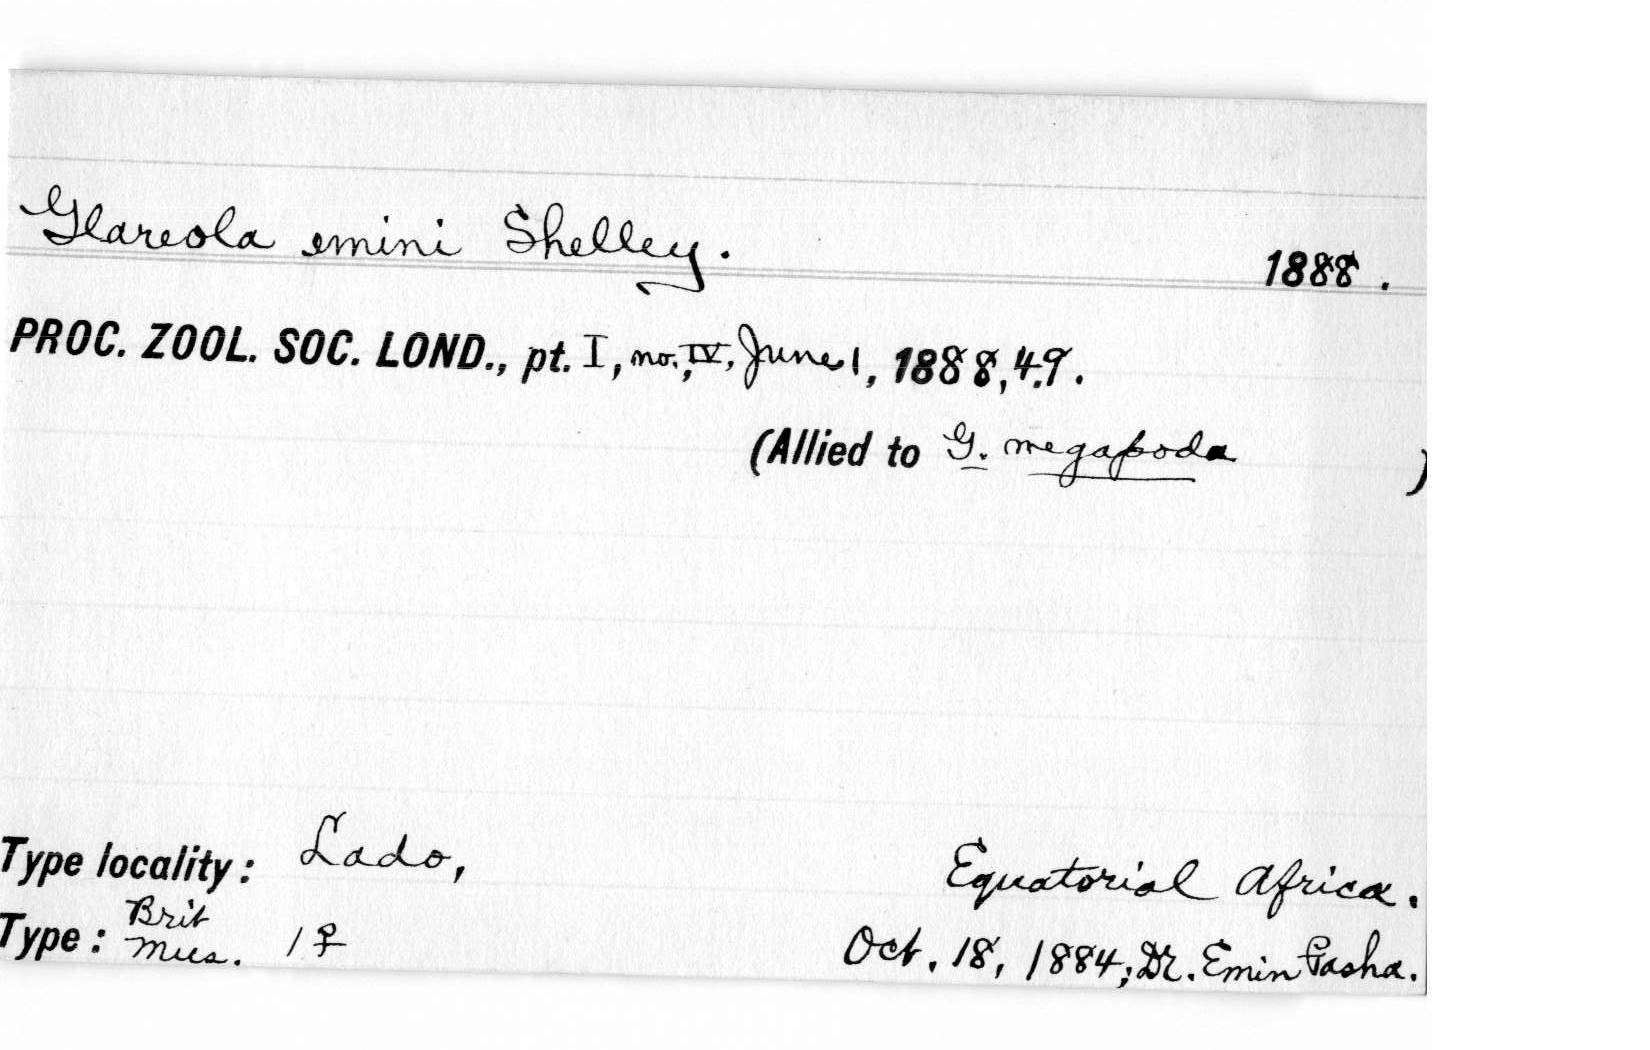 Glareola emini Shelley. 1888.
PROC. ZOOL. SOC. LOND., pt. I, no. IV, June 1, 1888, 49.
(Allied to G. megapoda )
Type locality: Lado, Equatorial Africa.
Type: Brit Mus. 1 ♀ Oct. 18, 1884; Dr. Emin Pasha.